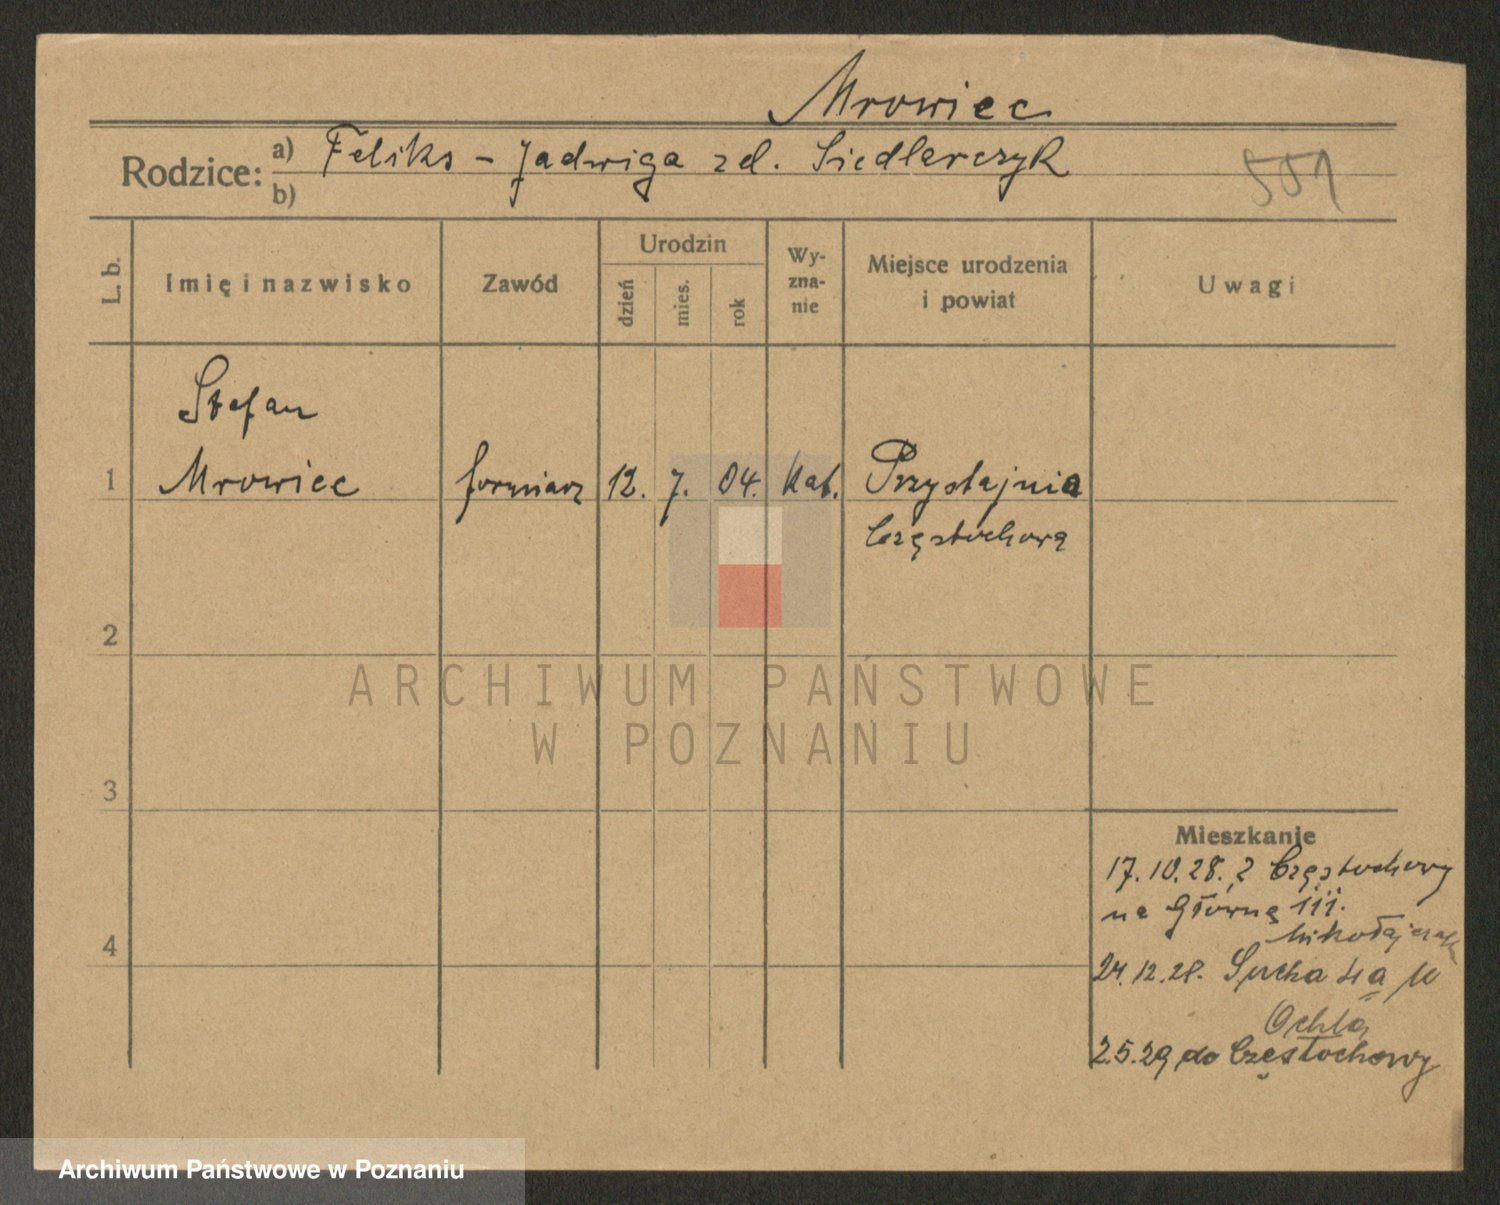 Mrowiec
Rodzice: a) Feliks - Jadwiga zd. Siedlarczyk
b)
551
L. b.
Imię i nazwisko
Zawód
Urodzin
dzień
mies.
rok
Wy-
zna-
nie
Miejsce urodzenia
i powiat
Uwagi
Stefan
1 Mrowiec formiarz 12. 7. 04. Kat. Przystajnia
Częstochowa
2
3
4
ARCHIWUM PAŃSTWOWE
W POZNANIU
Mieszkanie
17.10.28. z Częstochowy
na Główną
Mikołajczak
24.12.28. Sucha
2.5.29 do Częstochowy
Archiwum Państwowe w Poznaniu